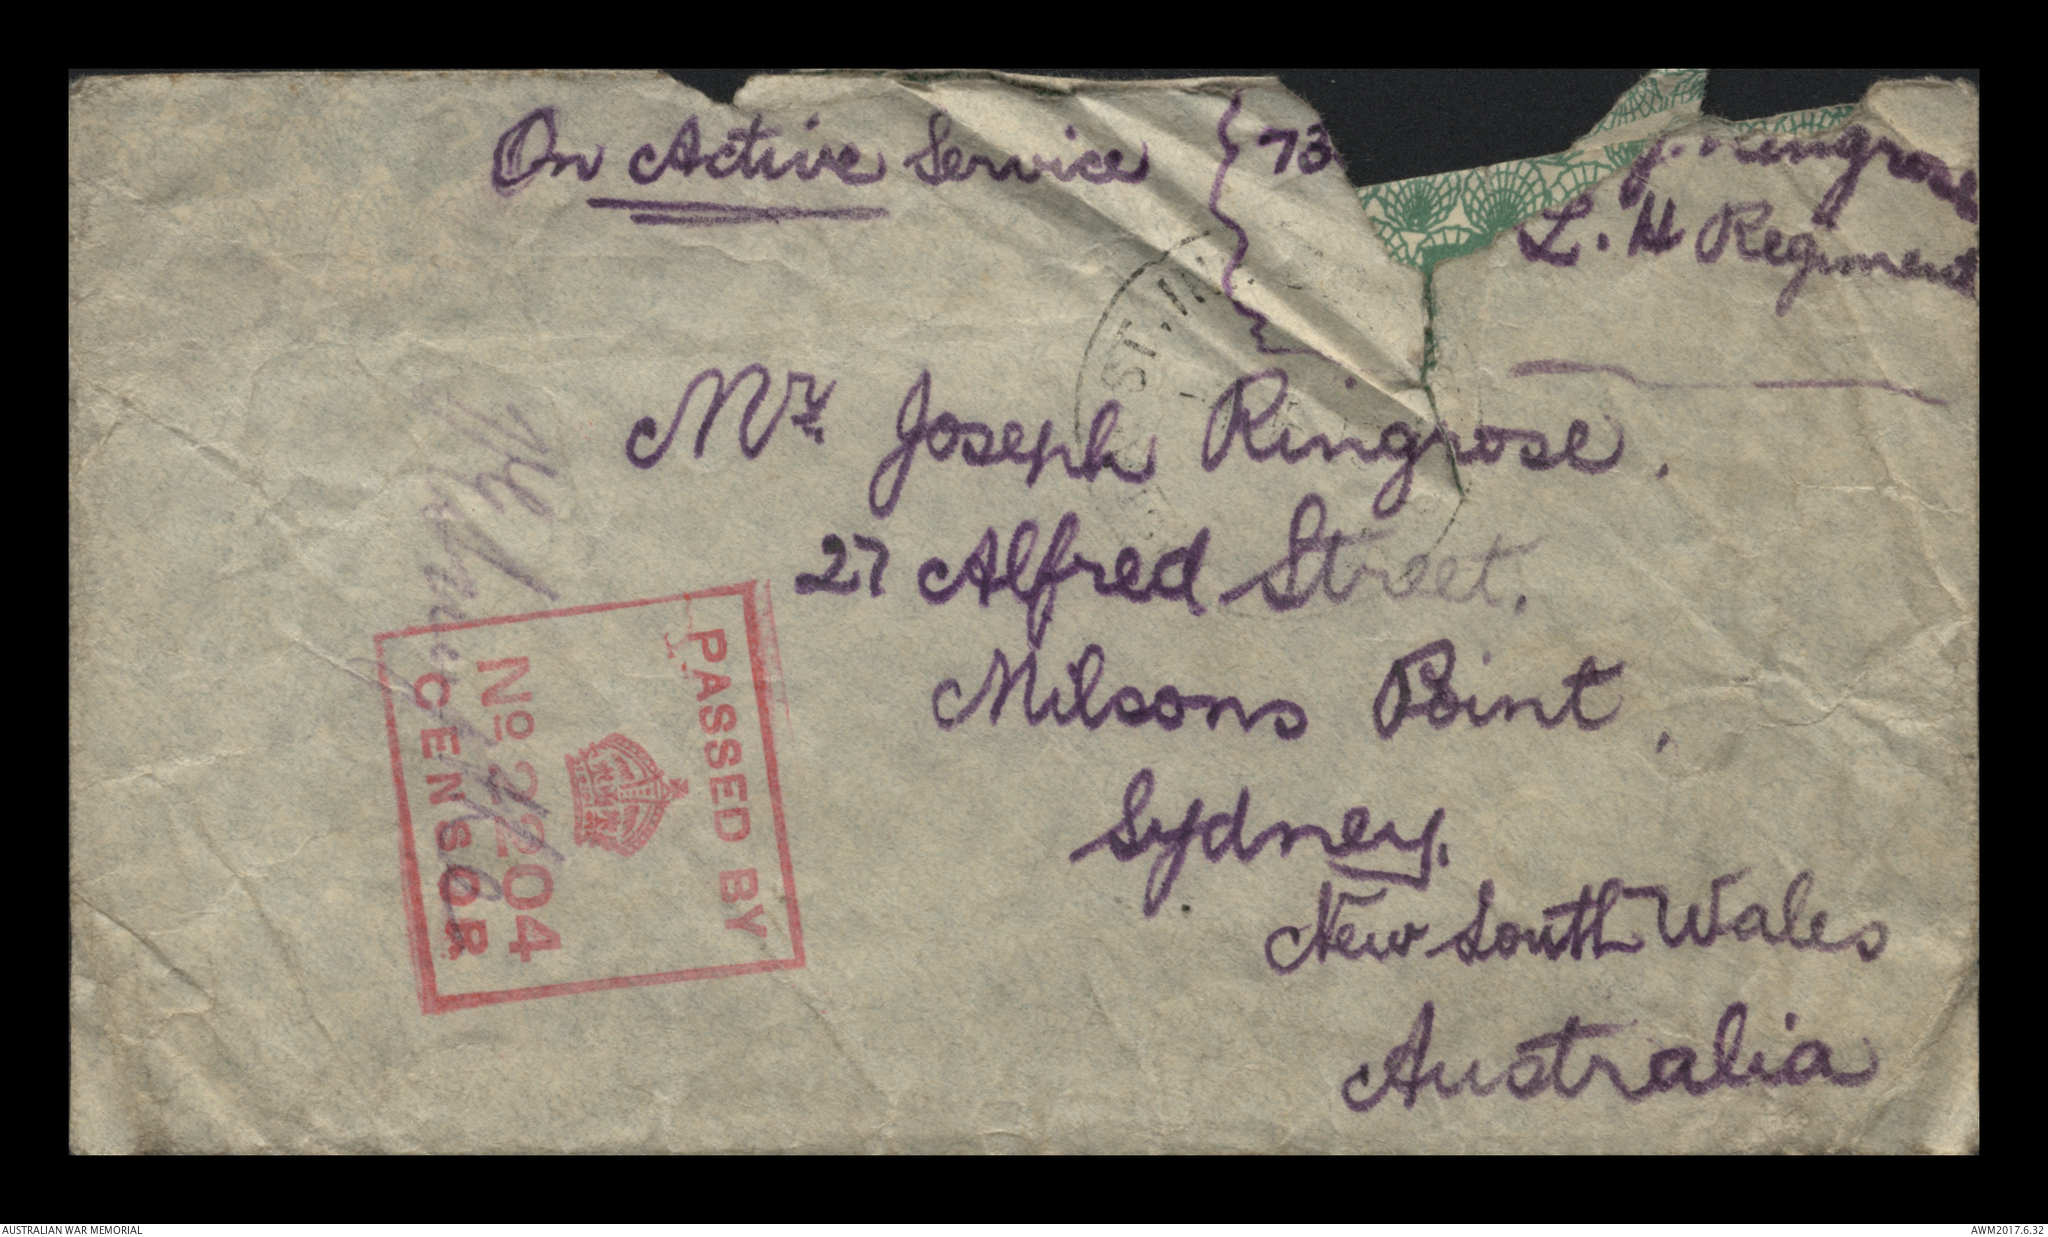 On Active Service 73
J. Ringrose
L. H Regiment
Mr. Joseph Ringrose.
27 Alfred Street.
Milsons Point,
Sydney.
New South Wales
Australia
PASSED BY
No 2204
CENSOR
AUSTRALIAN WAR MEMORIAL
AWM2017.6.32